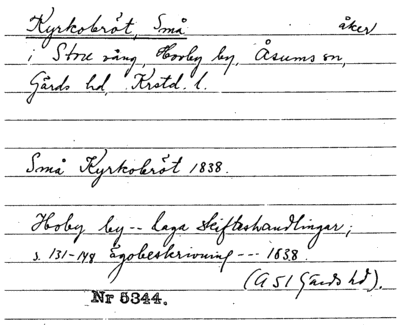 Kyrkobröt, Små åker
i Stru vång, Hovby by, Åsums sn,
Gärds hd, Krstd. l.
Små Kyrkobröt 1838.
Hoby by -- laga skifteshandlingar;
s. 131-148 Egobeskrivning --- 1838.
(A 51 Gärds hd).
Nr 5344.